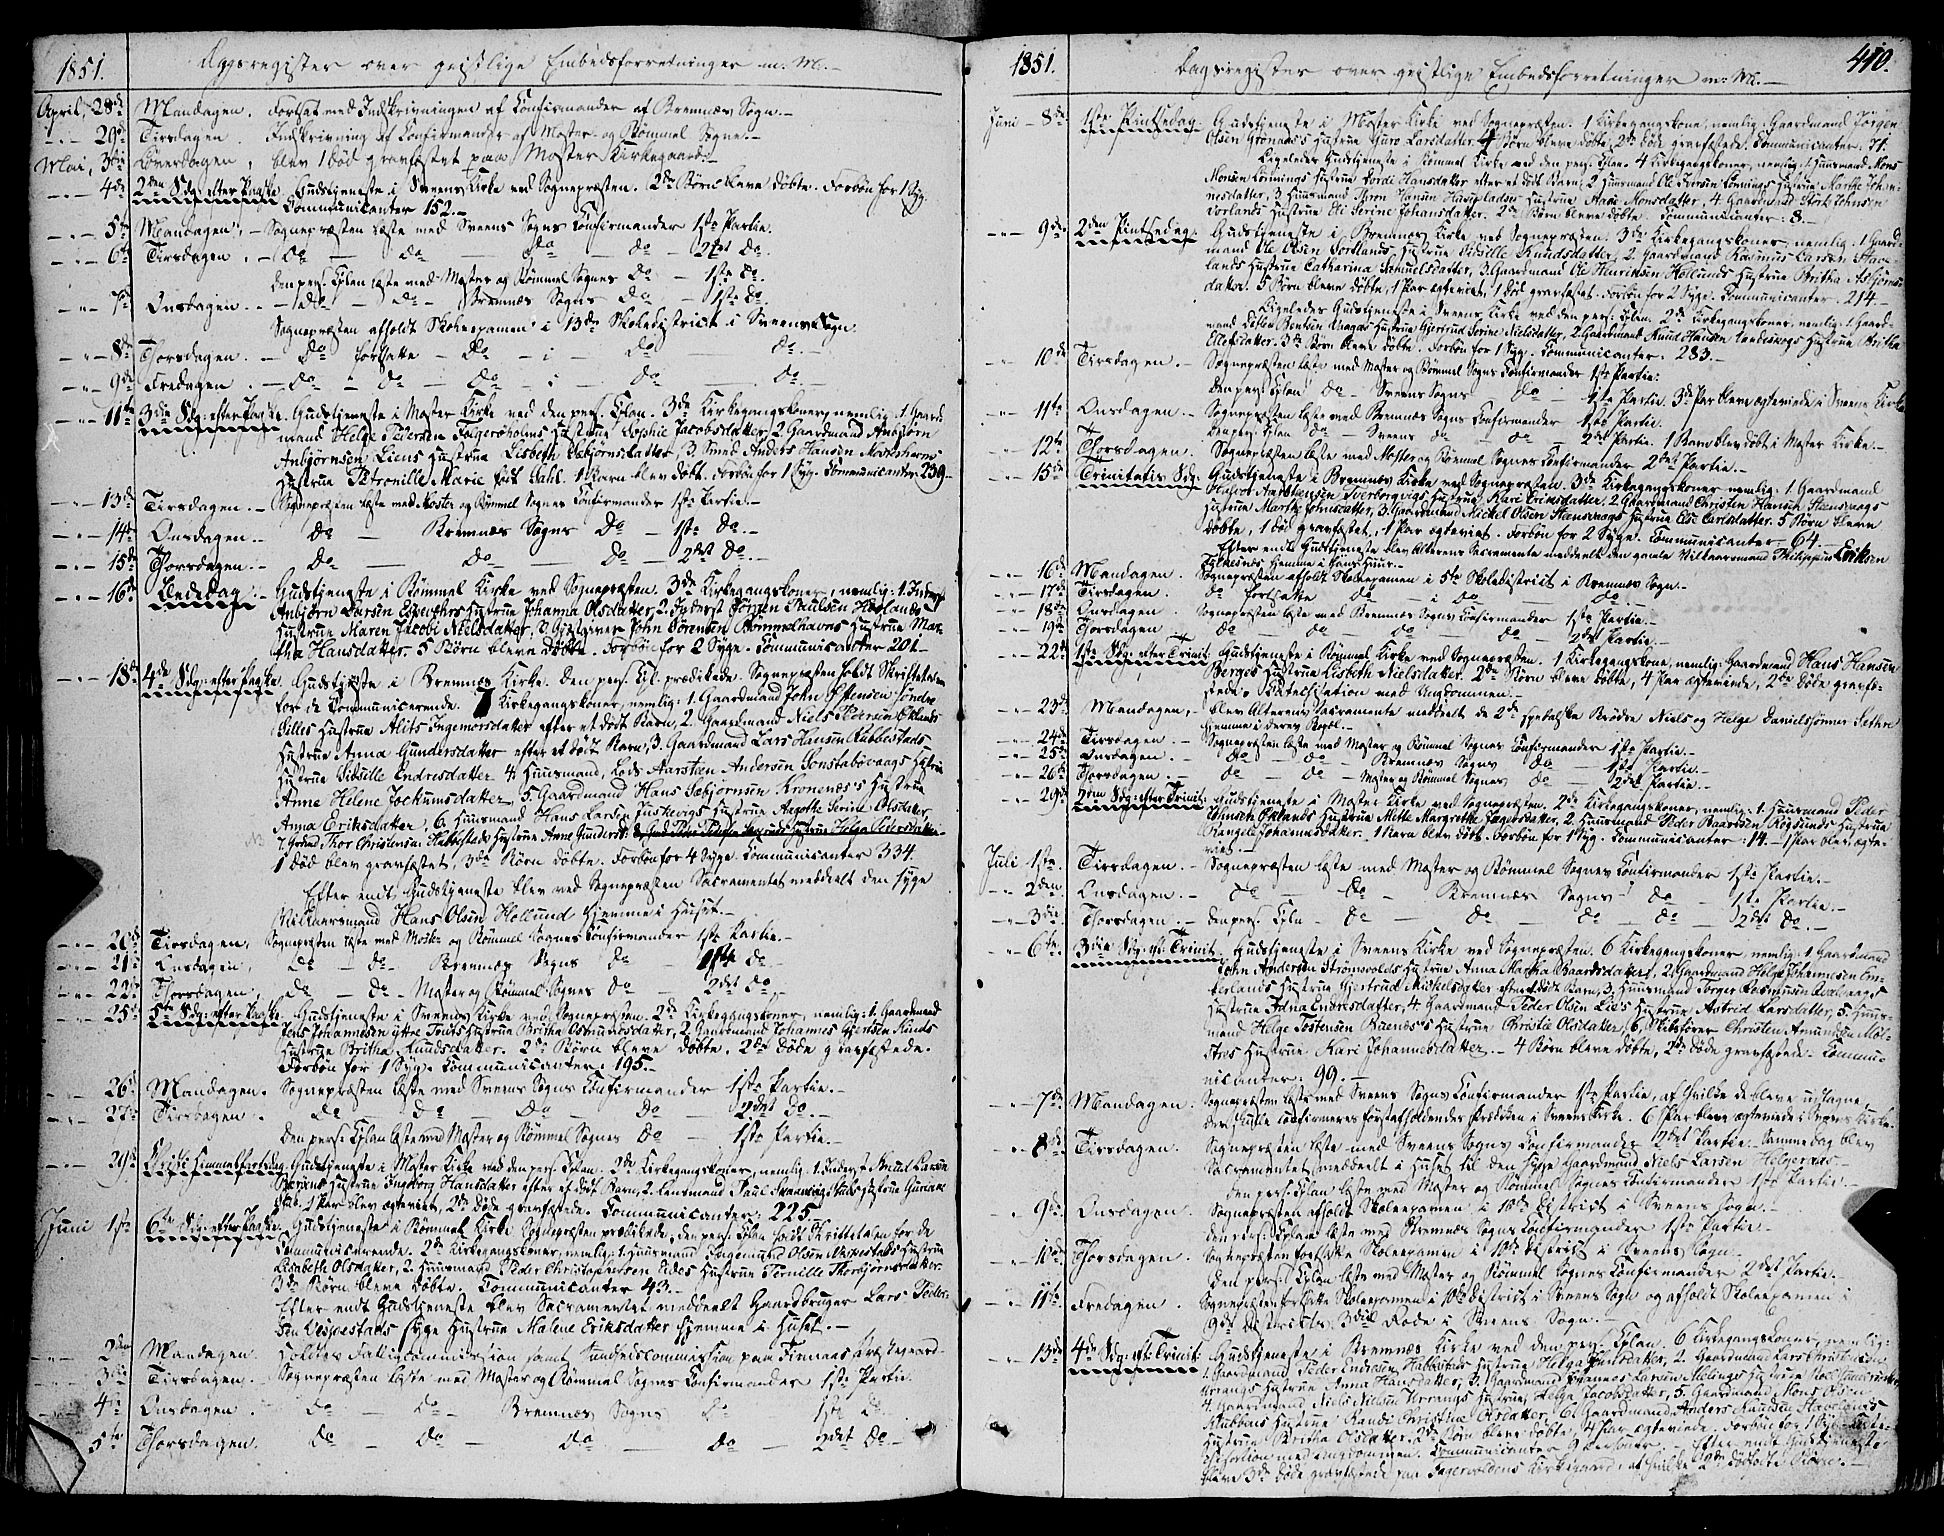 1851. Dagsregister over geistlige Embedsforretninger m. M.-
April, 28de Mandagen. Fortsat med Indskrivningen af Confirmander af Bremnæs Sogn.-
-"- 29de Tirsdagen Indskrivning af Confirmander af Moster- og Rømmel Sogne.-
Mai, 3die Løverdagen, blev 1 død gravfæstet paa Moster Kirkegaard.-
-"- 4de 2den Sdg: efter Paaske. Gudstjeneste i Sveens Kirke ved Sognepræsten. 2de Børn bleve døbte. Forbøn for 1 Syg.
Communicanter 152.-
-"- 5te Mandagen, - Sognepræsten læste med Sveens Sogns Confirmander 1ste Partie.
-"- 6te Tirsdagen. - Do - do - Do - do - 2det Do.
den pers. Cplan læste med Moster og Rømmel Sognes Do - 1ste Do.
-"- 7de Onsdagen. - do - do - Bremnæs Sogns Do - 1ste Do.
Sognepræsten afholdt Skoleexamen i 13de Skoledistrict i Sveens Sogn
-"- 8de Thorsdagen. - Do fortsatte - Do - i - Do Do.-
-"- 9de Fredagen. - Do - Do - Do - i - Do - Do.-
-"- 11te 3die Sdg: efter Paaske. Gudstjeneste i Moster Kirke ved den pers. Cplan. 3de Kirkegangskoner, nemlig: 1. Gaard-
mand Helge Pedersen Folgerøholms Hustrue Sophie Jacobsdatter, 2. Gaardmand Anbjørn
Anbjørnsen Liens Hustrue Lisbeth Asbjørnsdatter, 3. Smed Anders Hansen Mosterhavns
Hustrue Petronille Marie født Dahl. 1 Barn blev døbt. Forbøn for 1 Syg. Communicanter 239.-
-"- 13de Tirsdagen. - Sognepræsten læste med Moster og Rømmel Sognes Confirmander 1ste Partie.-
-"- 14de Onsdagen.- Do - Bremnæs Sogns Do - 1ste Do.-
-"- 15de Thorsdagen. - Do - Do - Do - 2det Do.-
-"- 16de Bededag.- Gudstjeneste i Rømmel Kirke ved Sognepræsten. 3de Kirkegangskoner, nemlig: 1. Inderst
Anbjørn Larsen Hustrue Johanna Olsdatter, 2. Inderst Jørgen Paulsen
Hustrue Maren Jacobi Nielsdatter, 3. Gjestgiver John Sørensen Rømmelhavns Hustrue Mar-
tha Hansdatter. 5 Børn bleve døbte. Forbøn for 2 Syge. Communicanter 201.-
-"- 18de 4de Sdg: efter Paaske. Gudstjeneste i Bremnæs Kirke. Den pers. Cpl. prædikede. Sognepræsten holdt Skriftetalen
for de Communicerende. 7 Kirkegangskoner, nemlig: 1. Gaardmand John
Gilles Hustrue Alits Ingemorsdatter efter et dødt Barn, 2. Gaardmand Niels Pedersen Øklands
Hustrue Anna Gundersdatter efter et dødt Barn, 3. Gaardmand Lars Hansen Rubbestads
Hustrue Sibille Endresdatter 4. Huusmand, Lods Aarsten Andersen Sønstabøvaags Hustrue
Anne Helene Jochumsdatter, 5. Gaardmand Hans Asbjørnsen Kronenæs's Hustrue
Anna Eriksdatter, 6. Huusmand Hans Larsen Hustrue Aagothe Serine Olsdatter,
7. Grdmd Thor Christensen Habbestads Hustrue Anne Gundersdr. Hustrue Helga Pedersdatter.
1 død blev gravfæstet, 3de Børn døbte. Forbøn for 4 Syge. Communicanter 334.
Efter endt Gudstjeneste blev ved Sognepræsten Sacramentet meddeelt den syge
Vilkaarsmand Hans Olsen Hollund hjemme i Huset.-
-"- 20de Tirsdagen, Sognepræsten læste med Moster og Rømmel Sognes Confirmander 1ste Partie.-
-"- 21de Onsdagen, Do - do - Bremnæs Sogns Do - 1ste Do.-
-"- 22de Thorsdagen, do - do - Moster og Rømmel Sognes Do - 2det do.-
-"- 25de 5te Sdg: efter Paaske. Gudstjeneste i Sveens Kirke ved Sognepræsten. 2de Kirkegangskoner, nemlig: 1. Gaardmand
Jens Johannesen yttre Tveits Hustrue Britha Osmundsdatter, 2. Gaardmand Johannes
Hustrue Britha Knudsdatter. 2de Børn bleve døbte. 2de døde gravfæstede.
Forbøn for 1 Syg. Communicanter: 195.-
26de Mandagen. Sognepræsten læste med Sveens Sogns Confirmander 1ste Partie.-
-"- 27de Tirsdagen. do - do - Do - Do - 2det Do.-
Den pers. Cplan læste med Moster og Rømmel Sognes Do - 1ste Partie.-
-"- 29de Christi Himmelfartsdag. Gudstjeneste i Moster Kirke ved den pers. Cplan. 2de Kirkegangskoner, nemlig: 1. Inderst Knud Larsen
Hustrue Ingeborg Hansdatter efter et dødt Barn, 2. Lensmand Paul Hustrue
1 Par blev ægteviet, 2de døde gravfæstede. Communicanter: 225.
Juni 1ste 6te Sdg: efter Paaske. Gudstjeneste i Rømmel Kirke. Sognepræsten prædikede, den pers. Cplan holdt Skriftetalen for de
Communicerende. 2de Kirkegangskoner, nemlig: 1. Huusmand Ingemund Olsen Hustrue
Lisabeth Olsdatter, 2. Huusmand Peder Christophersen Eides Hustrue Pernille Thorbjørnsdatter.
3de Børn bleve døbte. Communicanter 43.-
Efter endt Gudstjeneste blev Sacramentet meddeelt Gaardbruger Lars Peder-
sen Vespestads syge Hustrue Malene Eriksdatter hjemme i Huset.-
-"- 2den Mandagen. Holdtes Fattigcommission samt Sundhedscommission paa Finnaas Præstegaard.-
-"- 3die Tirsdagen. - Sognepræsten læste med Moster og Rømmel Sognes Confirmander 1ste Partie.-
-"- 4de Onsdagen. Do - Do - Bremnæs Sogns Do 1ste Do.-
5te Thorsdagen. Do - Do - Do - Do - 2det Do.-
1851. Dagsregister over geistlige Embedsforretninger m. M.- 410.
Juni - 8de 1ste Pintsedag. Gudstjeneste i Moster Kirke ved Sognepræsten. 1 Kirkegangskone, nemlig: Gaardmand Jørgen
Olsen Grønnaas's Hustrue Guro Larsdatter. 4 Børn bleve døbte, 2de døde gravfæstede. Communicanter: 71.
Ligeledes Gudstjeneste i Rømmel Kirke ved den pers. Cplan. 4 Kirkegangskoner, nemlig: 1. Huusmand Mons
Monsen Lønnings Hustrue Gordi Hansdatter efter et dødt Barn, 2. Huusmand Ole Iversen Lønnings Hustrue Marthe Johan-
nesdatter, 3. Huusmand Hansen Hustrue Aase Monsdatter, 4. Gaardmand Størk Johnsen
Vorlands Hustrue Ele Serine Johansdatter. 2de Børn bleve døbte. Communicanter: 8.-
-"- 9de 2den Pintsedag. Gudstjeneste i Bremnæs Kirke ved Sognepræsten. 3de Kirkegangskoner, nemlig: 1. Gaard-
mand Ole Olsen Sortlands Hustrue Sidsille Knudsdatter, 2. Gaardmand Rasmus Larsen Stav-
lands Hustrue Catharina Samuelsdatter, 3. Gaardmand Ole Henriksen Hollunds Hustrue Britha Asbjørns-
datter. 5 Børn bleve døbte, 1 Par ægteviet, 1 død gravfæstet. Forbøn for 2 Syge. Communicanter: 214.-
Ligeledes Gudstjeneste i Sveens Kirke ved den pers. Cplan. 2de Kirkegangskoner, nemlig: 1. Gaard-
mand Tosten Bentsen Hustrue Gjertrud Serine Nielsdatter, 2. Gaardmand Knud Hansen Tendeskogs Hustrue Britha
Ellefsdatter. 3de Børn bleve døbte. Forbøn for 1 Syg. Communicanter: 283.-
-"- 10de Tirsdagen - Sognepræsten læste med Moster og Rømmel Sogns Confirmander 1ste Partie:
Den pers. Cplan Do - Sveens Sogns Do - 1ste Partie. 3de Par bleve ægteviede i Sveens Kirke
-"- 11te Onsdagen. - Sognepræsten læste med Bremnæs Sogns Confirmander 1ste Partie.
Den pers. Cplan do - Sveens do - do - 2det Partie. 1 Barn blev døbt i Moster Kirke.-
-"- 12te Thorsdagen. Sognepræsten læste med Moster og Rømmel Sognes Confirmander 2det Partie.-
-"- 15de Trinitatis Sdg. Gudstjeneste i Bremnæs Kirke ved Sognepræsten. 3de Kirkegangskoner, nemlig: 1. Gaardmand
Halvor Aarstensen Hustrue Kari Eriksdatter, 2. Gaardmand Christen Hansen
Hustrue Marthe Johnsdatter, 3. Gaardmand Mickel Olsen Hustrue Else Carlsdatter. 5 Børn bleve
døbte, 1 død gravfæstet, 1 Par ægteviet. Forbøn for 2 Syge. Communicanter: 64.-
Efter endt Gudstjeneste blev Alterens Sacramente meddeelt den gamle Vilkaarsmand Philippus Eriksen
hjemme i hans Huus.-
-"- 16de Mandagen. Sognepræsten afholdt Skoleexamen i 5te Skoledistrict i Bremnæs Sogn.-
-"- 17de Tirsdagen. do fortsatte do - i do - do -
-"- 18de Onsdagen. Sognepræsten læste med Bremnæs Sogns Confirmander 1ste Partie.-
-"- 19de Thorsdagen do - do - do - do - 2det Partie.-
-"- 22de 1ste Sdg: efter Trinit. Gudstjeneste i Rømmel Kirke ved Sognepræsten. 1 Kirkegangskone, nemlig: Gaardmand Hans Hansen
Berges Hustrue Lisbeth Nielsdatter. 2de Børn bleve døbte, 4 Par ægteviede, 2de døde gravfæ-
stede. Catechisation med Ungdommen.-
-"- 23de Mandagen, - blev Alterens Sacramente meddeelt de 2de spedalske Brødre Niels og Helge Danielsønner
hjemme i deres Bopæl.-
-"- 24de Tirsdagen. - Sognepræsten læste med Moster og Rømmel Sognes Confirmander 1ste Partie.-
-"- 25de Onsdagen. - do - do - Bremnæs Sogns do - 1ste Partie.-
-"- 26de Thorsdagen. - do - do - Moster og Rømmel Sognes do - 2det Partie.-
-"- 29de 2den Sdg: efter Trinit. Gudstjeneste i Moster Kirke ved Sognepræsten. 2de Kirkegangskoner, nemlig: 1. Huusmand Peder
Johnsen Øklands Hustrue Mette Margrethe 2. Huusmand Peder Baardsen Hustrue
Rangele Johannesdatter. 1 Barn blev døbt. Forbøn for 1 Syg. Communicanter: 14. - 1 Par blev ægte-
viet.-
Juli - 1ste. Tirsdagen. - Sognepræsten læste med Moster og Rømmel Sognes Confirmander 1ste Partie.-
-"- 2den Onsdagen. - Do - Do Bremnæs Sogns Do - 1ste Partie.-
-"- 3die Thorsdagen. - den pers. Cpln - Do - Do - Do - Do - 2det Do.-
-"- 6te 3die Sdg. eft. Trinit. Gudstjeneste i Sveens Kirke ved Sognepræsten. 6 Kirkegangskoner, nemlig: 1. Gaardmand
John Andersen Strømsvolds Hustrue Anna Martha Baardsdatter, 2. Gaardmand Helge Johannesen Em-
berlands Hustrue Gjertrud Michelsdatter efter et dødt Barn, 3. Huusmand Torger Rasmussen
Hustrue Edna Endresdatter, 4. Gaardmand Peder Olsen Lie's Hustrue Astrid Larsdatter, 5. Huus-
mand Helge Tostensen Buenæs's Hustrue Christie Olsdatter, 6. Skibsfører Christen Amundsen Møl-
strøs Hustrue Kari Johannesdatter. - 4 Børn bleve døbte, 2de døde gravfæstede. Commu-
nicanter: 99.-
-"- 7de Mandagen. Sognepræsten læste med Sveens Sogns Confirmander 1ste Partie, af hvilke de bleve udtagne,
der skulle confirmeres førstafholdendes Prædiken i Sveens Kirke. 6 Par bleve ægteviede i Sveens Kirke.
-"- 8de Tirsdagen. Sognepræsten læste med Sveens Sogns Confirmander 2det Partie. Samme dag blev
Sacramentet meddeelt i Huset til den syge Gaardmand Niels Larsen
Den pers. Cplan læste med Moster og Rømmel Sognes Confirmander 1ste Partie.-
-"- 9de Onsdagen. Sognepræsten afholdt Skoleexamen i 10de District i Sveens Sogn.-
den pers. Cplan læste med Bremnæs Sogns Confirmander 1ste Partie.-
-"- 10de Thorsdagen. Sognepræsten fortsatte Skoleexamen i 10de District i Sveens Sogn.
Den pers. Cplan læste med Moster og Rømmel Sognes Confirmander 2det Partie.
-"- 11te Fredagen. Sognepræsten fortsatte Skoleexamen i 10de District i Sveens Sogn og afholdt Skoleexamen i
9de Districts 3die Rode i Sveens Sogn.-
-"- 13de 4de Sdg. eft. Trinit: Gudstjeneste i Bremnæs Kirke ved den pers. Cplan. 6 Kirkegangskoner, nemlig:
1. Gaardmand Peder Endresen Habbestads Hustrue Helga 2. Gaardmand Lars Christensen
Urrangs Hustrue Anna Hansdatter, 3. Gaardmand Johannes Larsen Melings Hustrue
4. Gaardmand Niels Nielsen Urrangs Hustrue Helga Jacobsdatter, 5. Gaardmand Mons Olsen
Klubbens Hustrue Randi Christina Olsdatter, 6. Gaardmand Anders Knudsen
Hustrue Britha Olsdatter. 2de Børn bleve døbte, 4 Par ægteviede. Forbøn for 1 Syg. Cate-
chisation med Ungdommen. Communicanter 9 Personer. - Efter endt Gudstjeneste
bleve 3de døde gravfæstede paa Fagervoldens Kirkegaard, af hvilke 2de dødfødte Børn.-